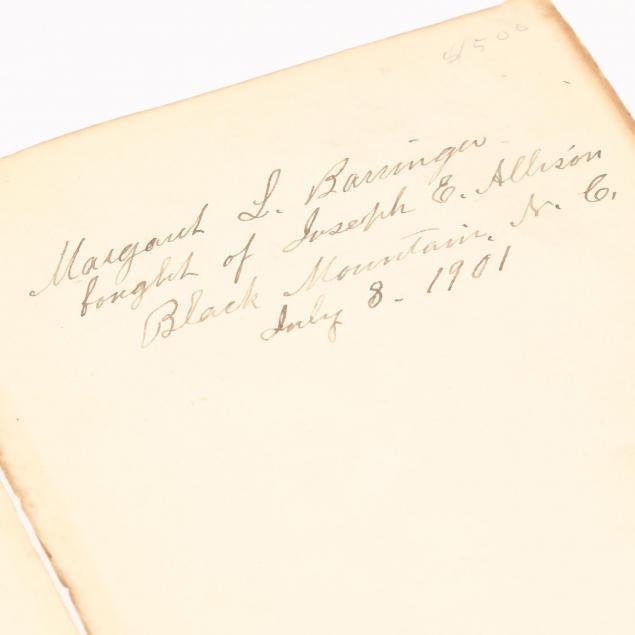 4500
Margaret L. Barringer
bought of Joseph E. Allison
Black Mountain, N. C.
July 8 - 1901